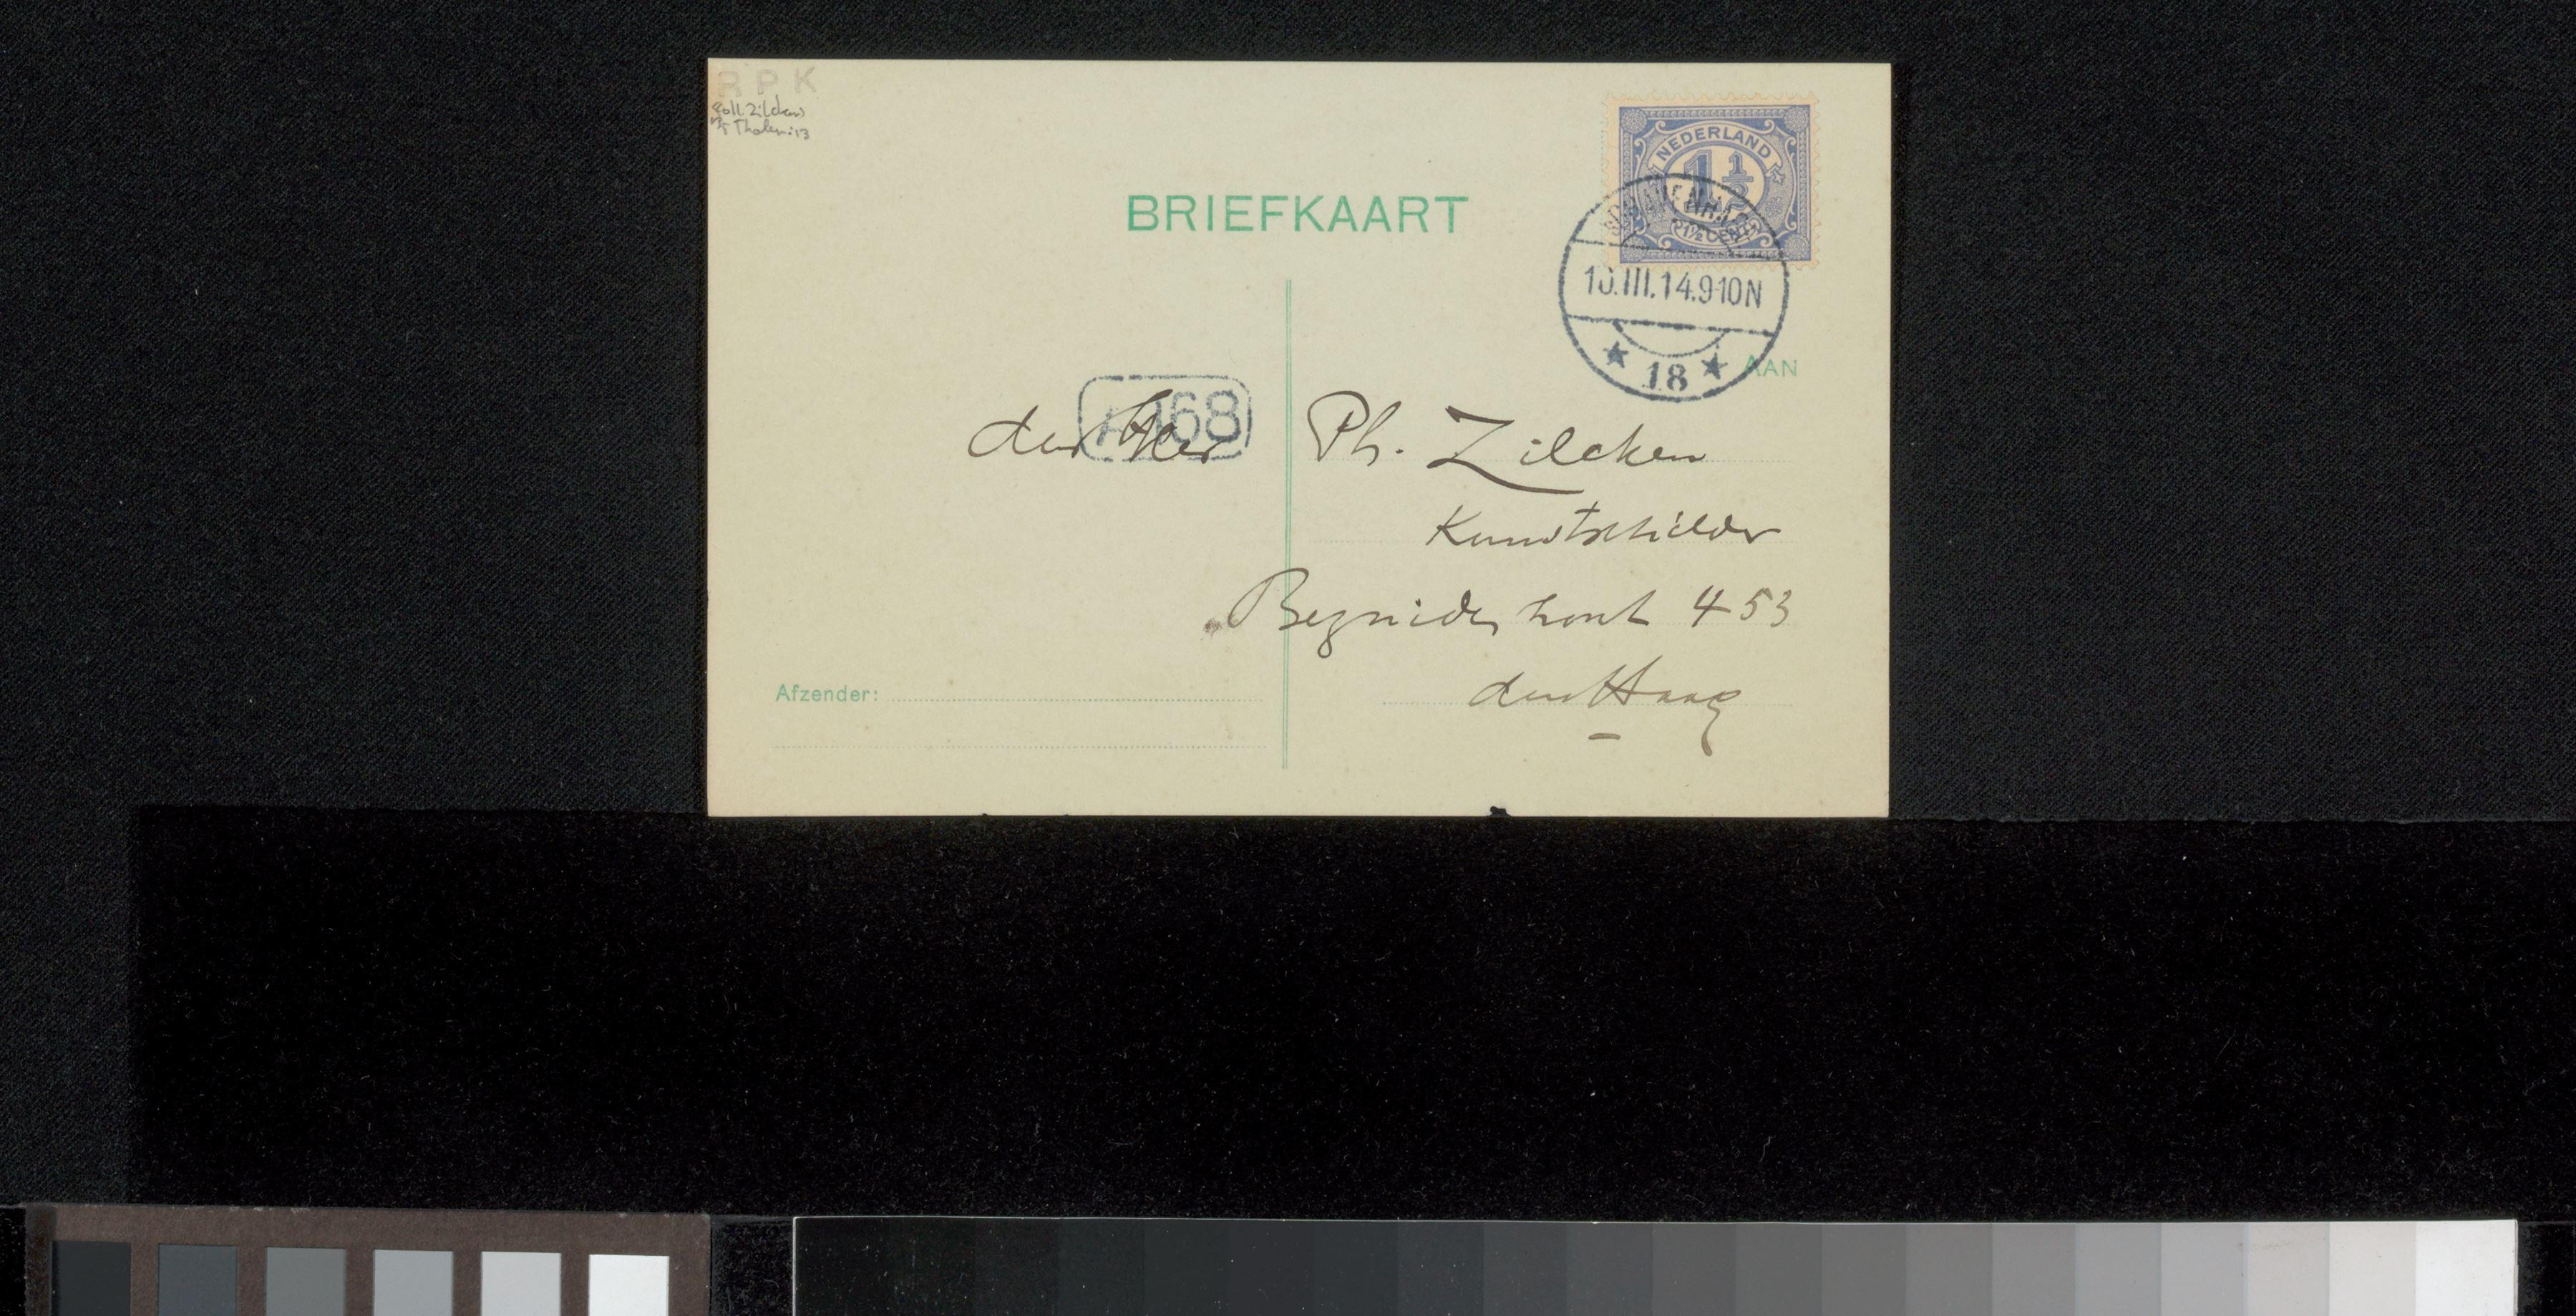 RPK
Coll. Zilcken
Tholen: 13
BRIEFKAART
NEDERLAND
1 1/2
1½ CENT
'SGRAVENHAGE
.III.14.9-10N
18
AAN
den Heer Ph. Zilcken
68
Kunstschilder
Bezuidenhout 453
den Haag
Afzender: